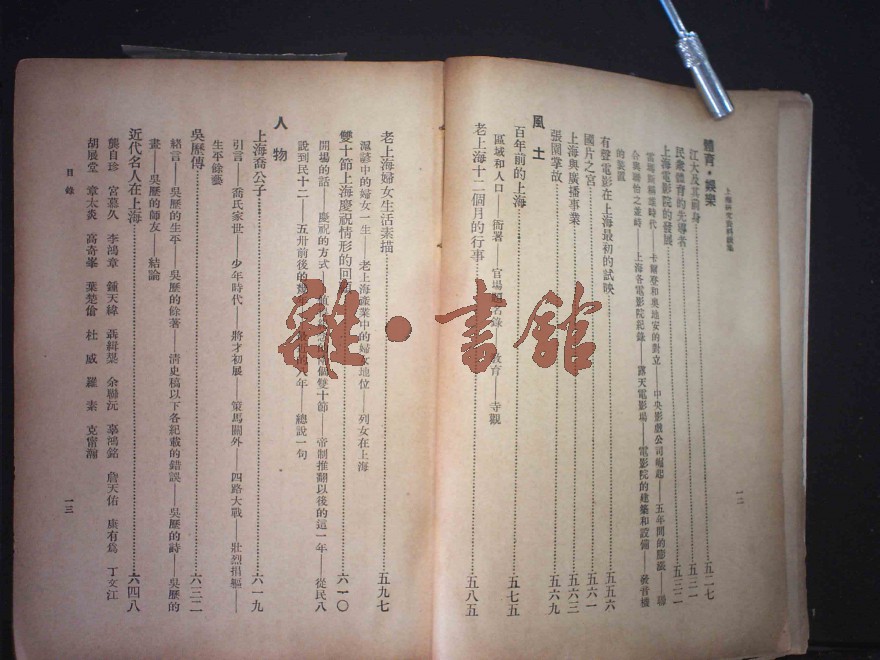 上海研究資料續集
體育・娛樂
江大及其前身……五二七
民衆體育的先導者……五三一
上海電影院的發展……五三二
雷瑪斯稱雄時代——卡爾登和奧地安的對立——中央影戲公司崛起——五年間的膨漲——聯
合與聯怡之並峙——上海各電影院紀錄——露天電影場——電影院的建築和設備——發音機
的裝置
有聲電影在上海最初的試映……五五六
國片之宮……五六一
上海與廣播事業……五六三
張園掌故……五六九
風土
百年前的上海……五七五
區域和人口——衙署——官場題名錄——教育——寺觀
老上海十二個月的行事……五八五
一二
老上海婦女生活素描……五九七
滬諺中的婦女一生——老上海產業中的婦女地位——列女在上海
雙十節上海慶祝情形的回……六一〇
開場的話——慶祝的方式——個雙十節——帝制推翻以後的這一年——從民八
說到民十二——五卅前後的幾年——八年——總說一句
人物
上海喬公子……六一九
引言——喬氏家世——少年時代——將才初展——策馬關外——四路大戰——壯烈捐軀——
生平餘藝
吳歷傳……六三二
緒言——吳歷的生平——吳歷的餘著——清史稿以下各紀載的錯誤——吳歷的詩——吳歷的
畫——吳歷的師友——結論
近代名人在上海……六四八
龔自珍 宮慕久 李鴻章 鍾天緯 聶緝槼 余聯沅 辜鴻銘 詹天佑 康有爲 丁文江
胡展堂 章太炎 高奇峯 葉楚傖 杜威 羅素 克甯瀚
目錄
一三
雜・書館